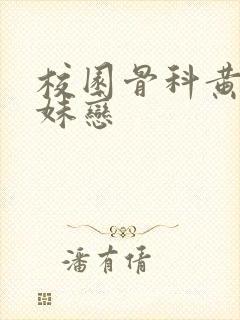 校園骨科黄
妹戀
潘有倩